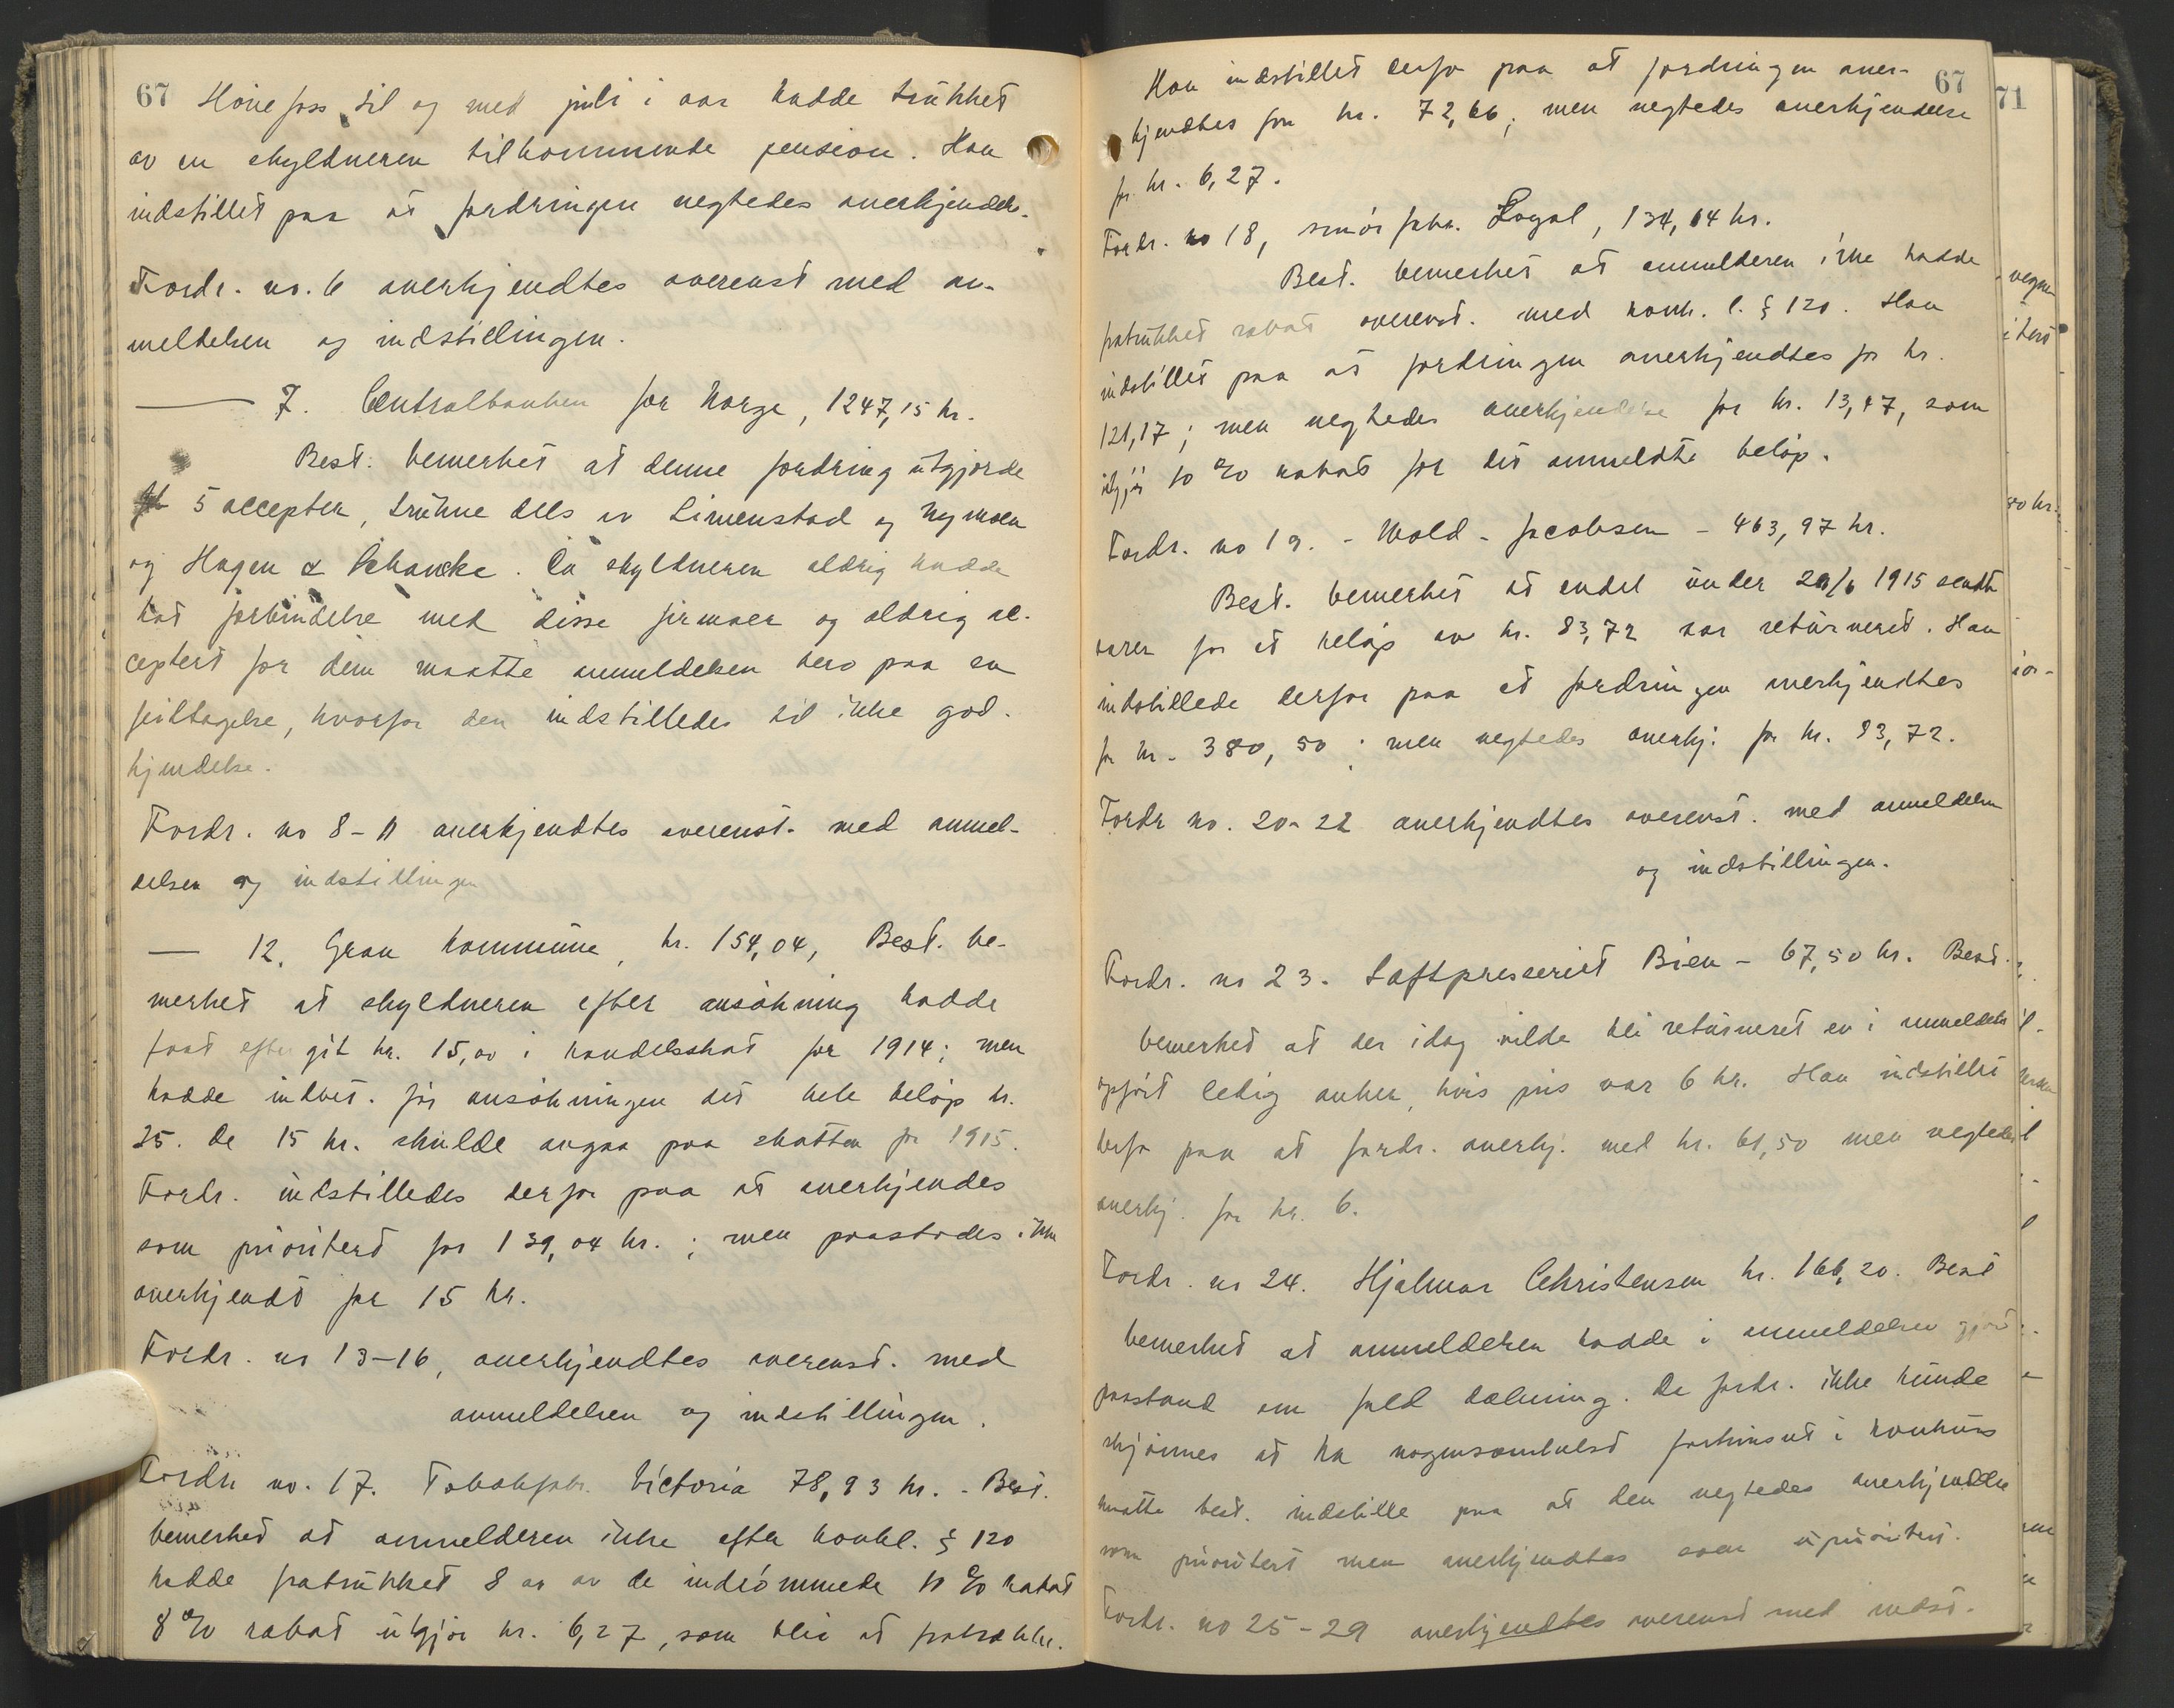 67
Hönefoss til og med juli i aar hadde trukket
av en skyldneren tilkommende pension. Han
indstillet paa at fordringen negtedes anerkjendels.
Fordr. no. 6 anerkjendtes overenst med an-
meldelsen og indstillingen.
—— 7. Centralbanken for Norge, 1247,15 kr.
Best. bemerket at denne fordring utgjorde
5 accepter, trukne dels av Limenstad og Nymoen
og Hagen & Schancke. Da skyldneren aldrig hadde
hat forbindelse med disse firmaer og aldrig ac-
ceptert for dem maatte anmeldelsen bero paa en
feiltagelse, hvorfor den indstilledes til ikke god-
kjendelse.
Fordr. no 8-11 anerkjendtes overenst. med anmel-
delsen og indstillingen
— 12. Gran kommune, kr. 154,04, Best. be-
merket at skyldneren efter ansökning hadde
faat eftergit kr. 15,00 i handelsskat for 1914; men
hadde indbet. för ansökningen det hele belöp kr.
25. De 15 kr. skulde avgaa paa skatten for 1915.
Fordr. indstilledes derfor paa at anerkjendes
som prioritert for 139,04 kr.; men paastodes ikke
anerkjendt for 15 kr.
Fordr. no 13-16, anerkjendtes overenst. med
anmeldelsen og indstillingen.
Fordr. no. 17. Tobakfabr. Victoria 78,93 kr. - Best.
bemerket at anmelderen ikke efter konkl. § 120
hadde fratrukket 8 av de indrömmede 10 % rabat
8 % rabat utgjör kr. 6,27, som blir at fratrække.
67
Han indstillet derfor paa at fordringen aner-
kjendtes for kr. 72,66; men negtedes anerkjendelse
for kr. 6,27.
Fordr. no 18, smörfabr. Loyal, 134,64 kr.
Best. bemerket at anmelderen ikke hadde
fratrukket rabat overenst. med konk. l. § 120. Han
indstillet paa at fordringen anerkjendtes for kr.
121,17; men negtedes anerkjendelse for kr. 13,47, som
utgjör 10 % rabat for det anmeldte belöp.
Fordr. no 19. - Wold-Jacobsen - 463,97 kr.
Best. bemerket at endel under 29/6 1915 sendte
varer for et belöp av kr. 83,72 var returneret. Han
indstillede derfor paa at fordringen anerkjendtes
for kr. 380,50; men negtedes anerkj. for kr. 83,72.
Fordr no. 20-22 anerkjendtes overenst. med anmeldelsen
og indstillingen.
Fordr. no 23. Saftpresseriet Bien - 67,50 kr. Best.
bemerket at der idag vilde bli returneret en i anmeldelsen
opfört ledig anker, hvis pris var 6 kr. Han indstillet
derfor paa at fordr. anerkj. med kr. 61,50 men negtedes
anerkj. for kr. 6.
Fordr. no 24. Hjalmar Christensen kr. 166,20. Best
bemerket at anmelderen hadde i anmeldelsen gjort
paastand om fuld dækning. Da fordr. ikke kunde
skjönnes at ha nogensomhelst fortrinsret i konkurs
maatte best. indstille paa at den negtedes anerkjendelse
som prioritert men anerkjendtes som uprioritert.
Fordr. no 25-29 anerkjendtes overenst med indst.
71